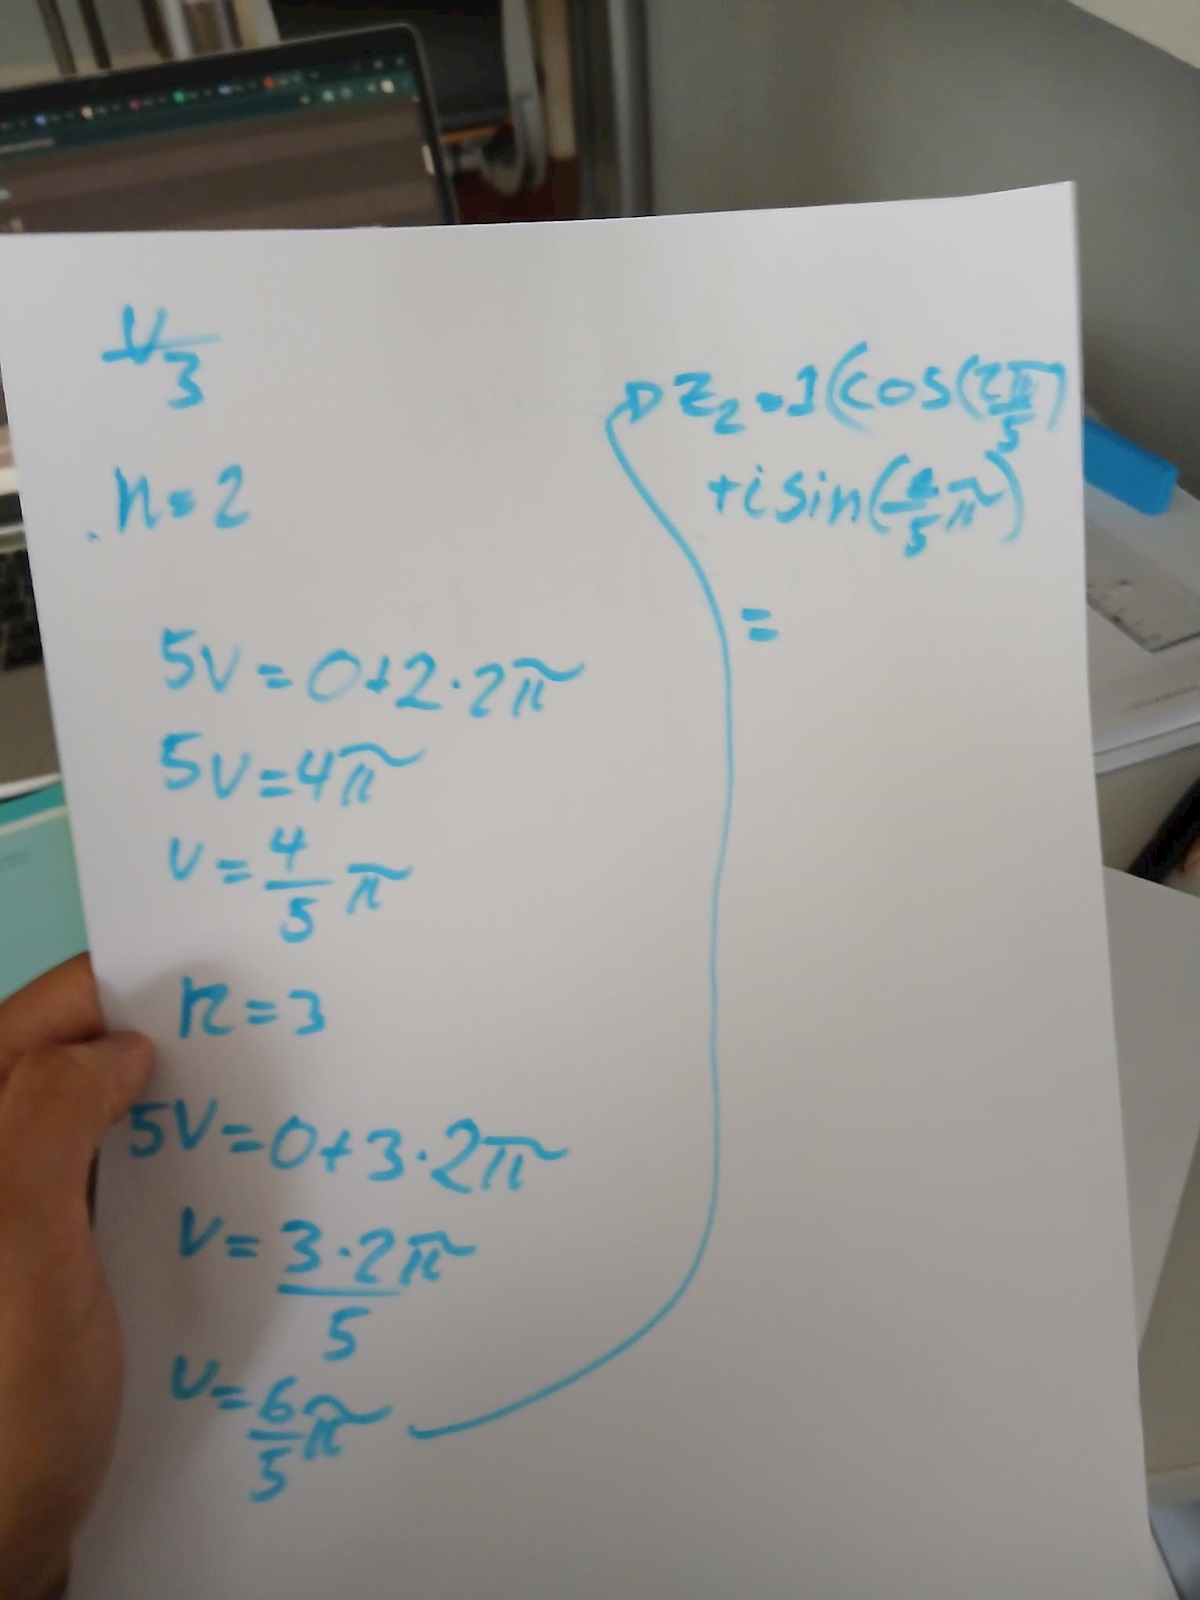 V/3
n=2
5v=0+2·2π
5v=4π
v=4/5 π
n=3
5v=0+3·2π
v=3·2π/5
v=6/5 π
z₂=1(cos(2π/5)
+i sin(
π)
=